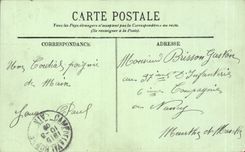 CARTE POSTALE
Tous les Pays étrangers n'acceptent pas la Correspondance au recto.
(Se renseigner à la Poste)
CORRESPONDANCE
ADRESSE
Mon Cordial poignée
de Main
Paul
Monsieur Brisson Gaston
au 37ème d'Infanterie
Compagnie
Nancy
Meurthe et Moselle